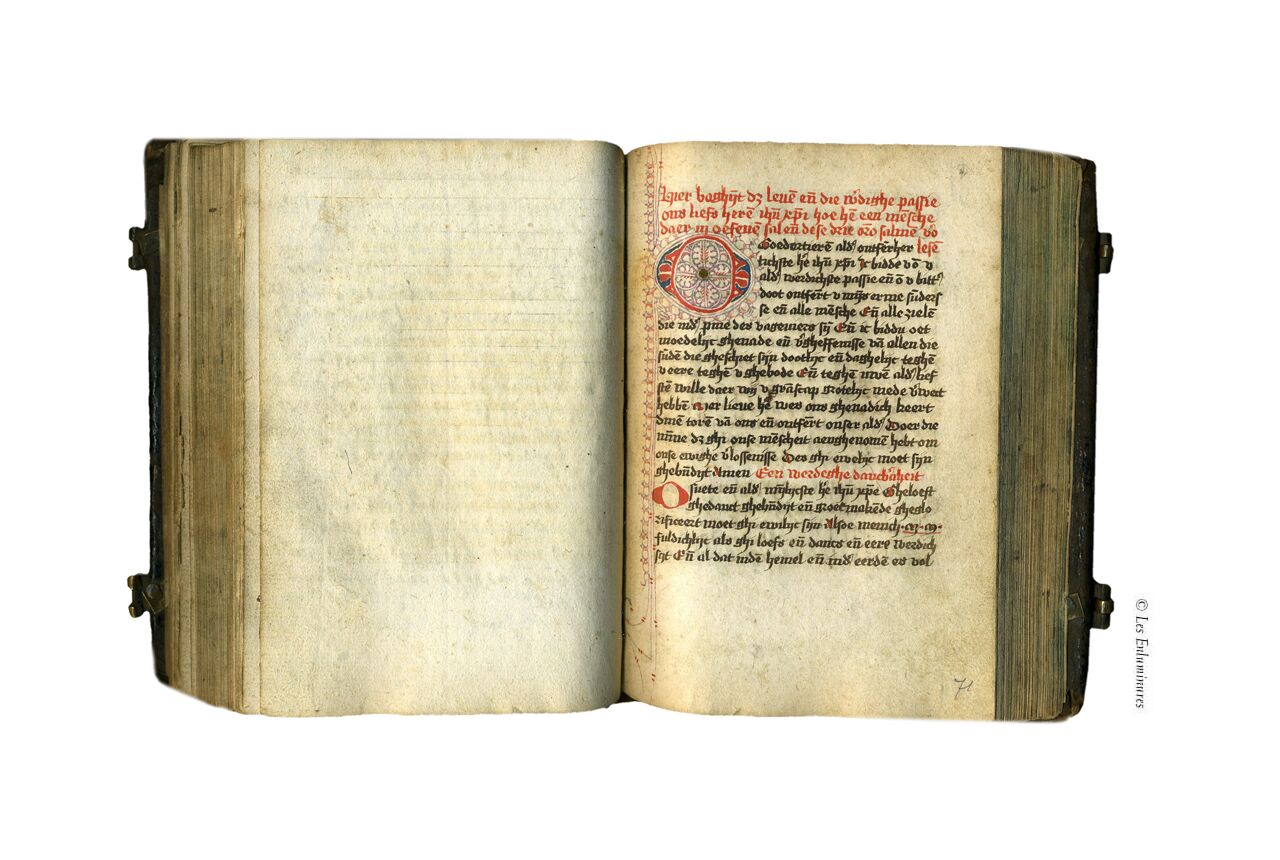 Hier beghīt dz leuē eñ die w'dighe passie
ons liefs herē ihū xp̄i hoe hē een mēsche
daer in oefenē sal eñ dese drie orō salmē vō
Goedertierē ald' ontfērher lesē
tichste h'e ihū xp̄i ic bidde v ō v
ald' werdichste passie eñ ō v bitt'
doot ontfert v mijs erme sūders
se eñ alle mēsche Eñ alle zielē
die ind' pine des vageuiers sij̄ Eñ ic biddu oet
moedelijc ghenade eñ v'gheffenisse vā allen die
sūdē die gheschiet sijn dootlijc eñ daghelijc teghē
v eere teghē v ghebode Eñ teghē uwē ald' lief
stē wille daer wij v grāscap grotelijc mede v'wect
hebbē Mar lieue h'e wes ons ghenadich keert
dinē torē vā ons eñ ontfert onser ald' Doer die
mīne dz ghi onse mēscheit aenghenomē hebt om
onse ewighe v'lossenisse Des ghi ewelijc moet sijn
ghebn̄dijt Amen Een werdeghe dancb'heit
O suete eñ ald' mīlijcste h'e ihū xp̄e Gheloeft
ghedanct ghebn̄dijt eñ groetmakēde gheglo
rificeert moet ghi ewilijc sijn Alsoe menich
fuldichlijc als ghi loefs eñ dancs eñ eere werdich
sijt Eñ al dat indē hemel eñ ind' eerdē es vol
71
© Les Enluminures